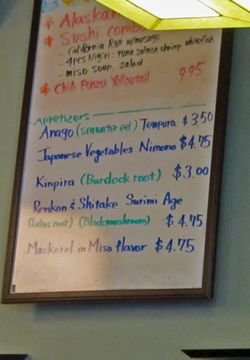 Alaskan
Sushi combo
- California Roll w/masago
- 4pcs Nigiri: tuna salmon shrimp whitefish
- miso soup, salad
Chili Ponzu Yellowtail 9.95
Appetizers
Anago (seawater eel) Tempura $3.50
Japanese Vegetables Nimono $4.75
Kinpira (Burdock root) $3.00
Renkon & Shitake Surimi Age
(Lotus root) (Black mushroom) $4.75
Mackerel in Miso flavor $4.75